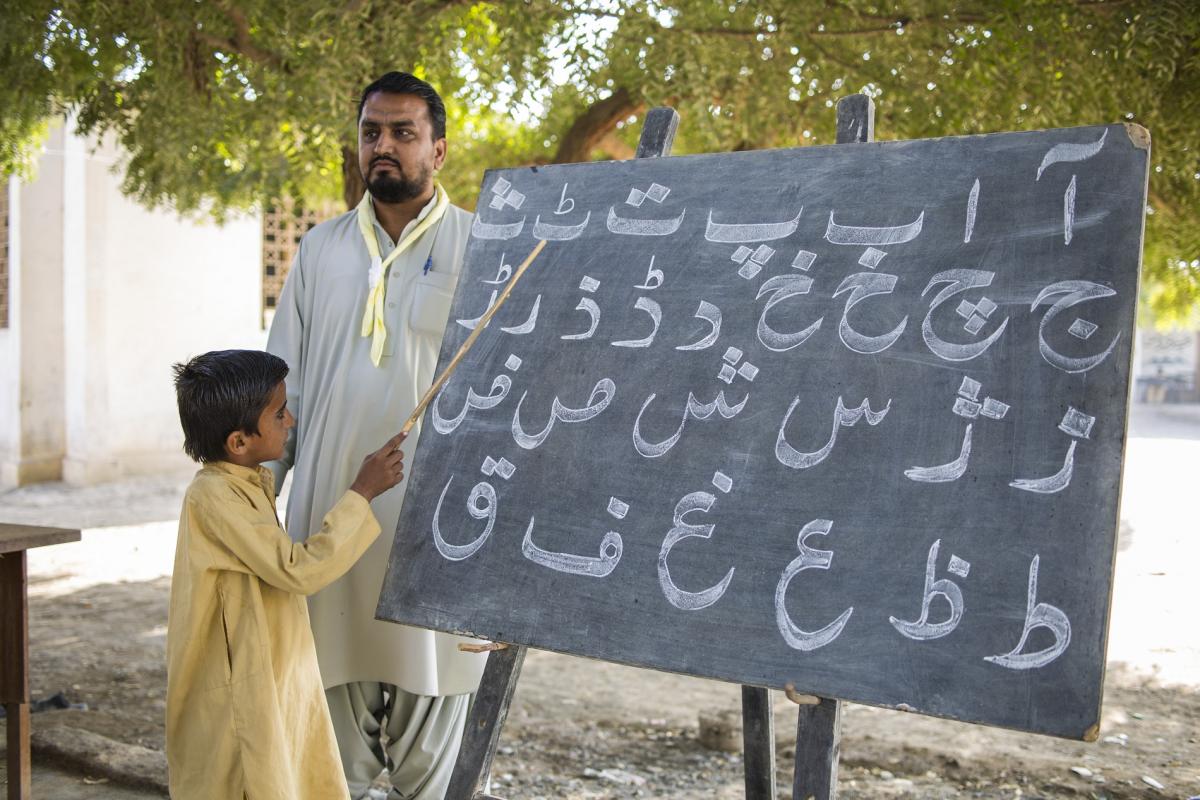 آ ا ب پ ت ٹ ث
ج چ ح خ د ڈ ذ ر ڑ
ز ژ س ش ص ض
ط ظ ع غ ف ق